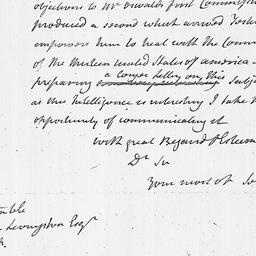 objections to Mr Oswalds first Commission
produced a second which arrived Yester
empowers him to treat with the Comm
of the thirteen united States of america—
preparing a longer letter on this subje
as this Intelligence is interesting I take th
opportunity of communicating it
with great Regard & Esteem
Dr Sir
Your most ob
Livingston Esqr